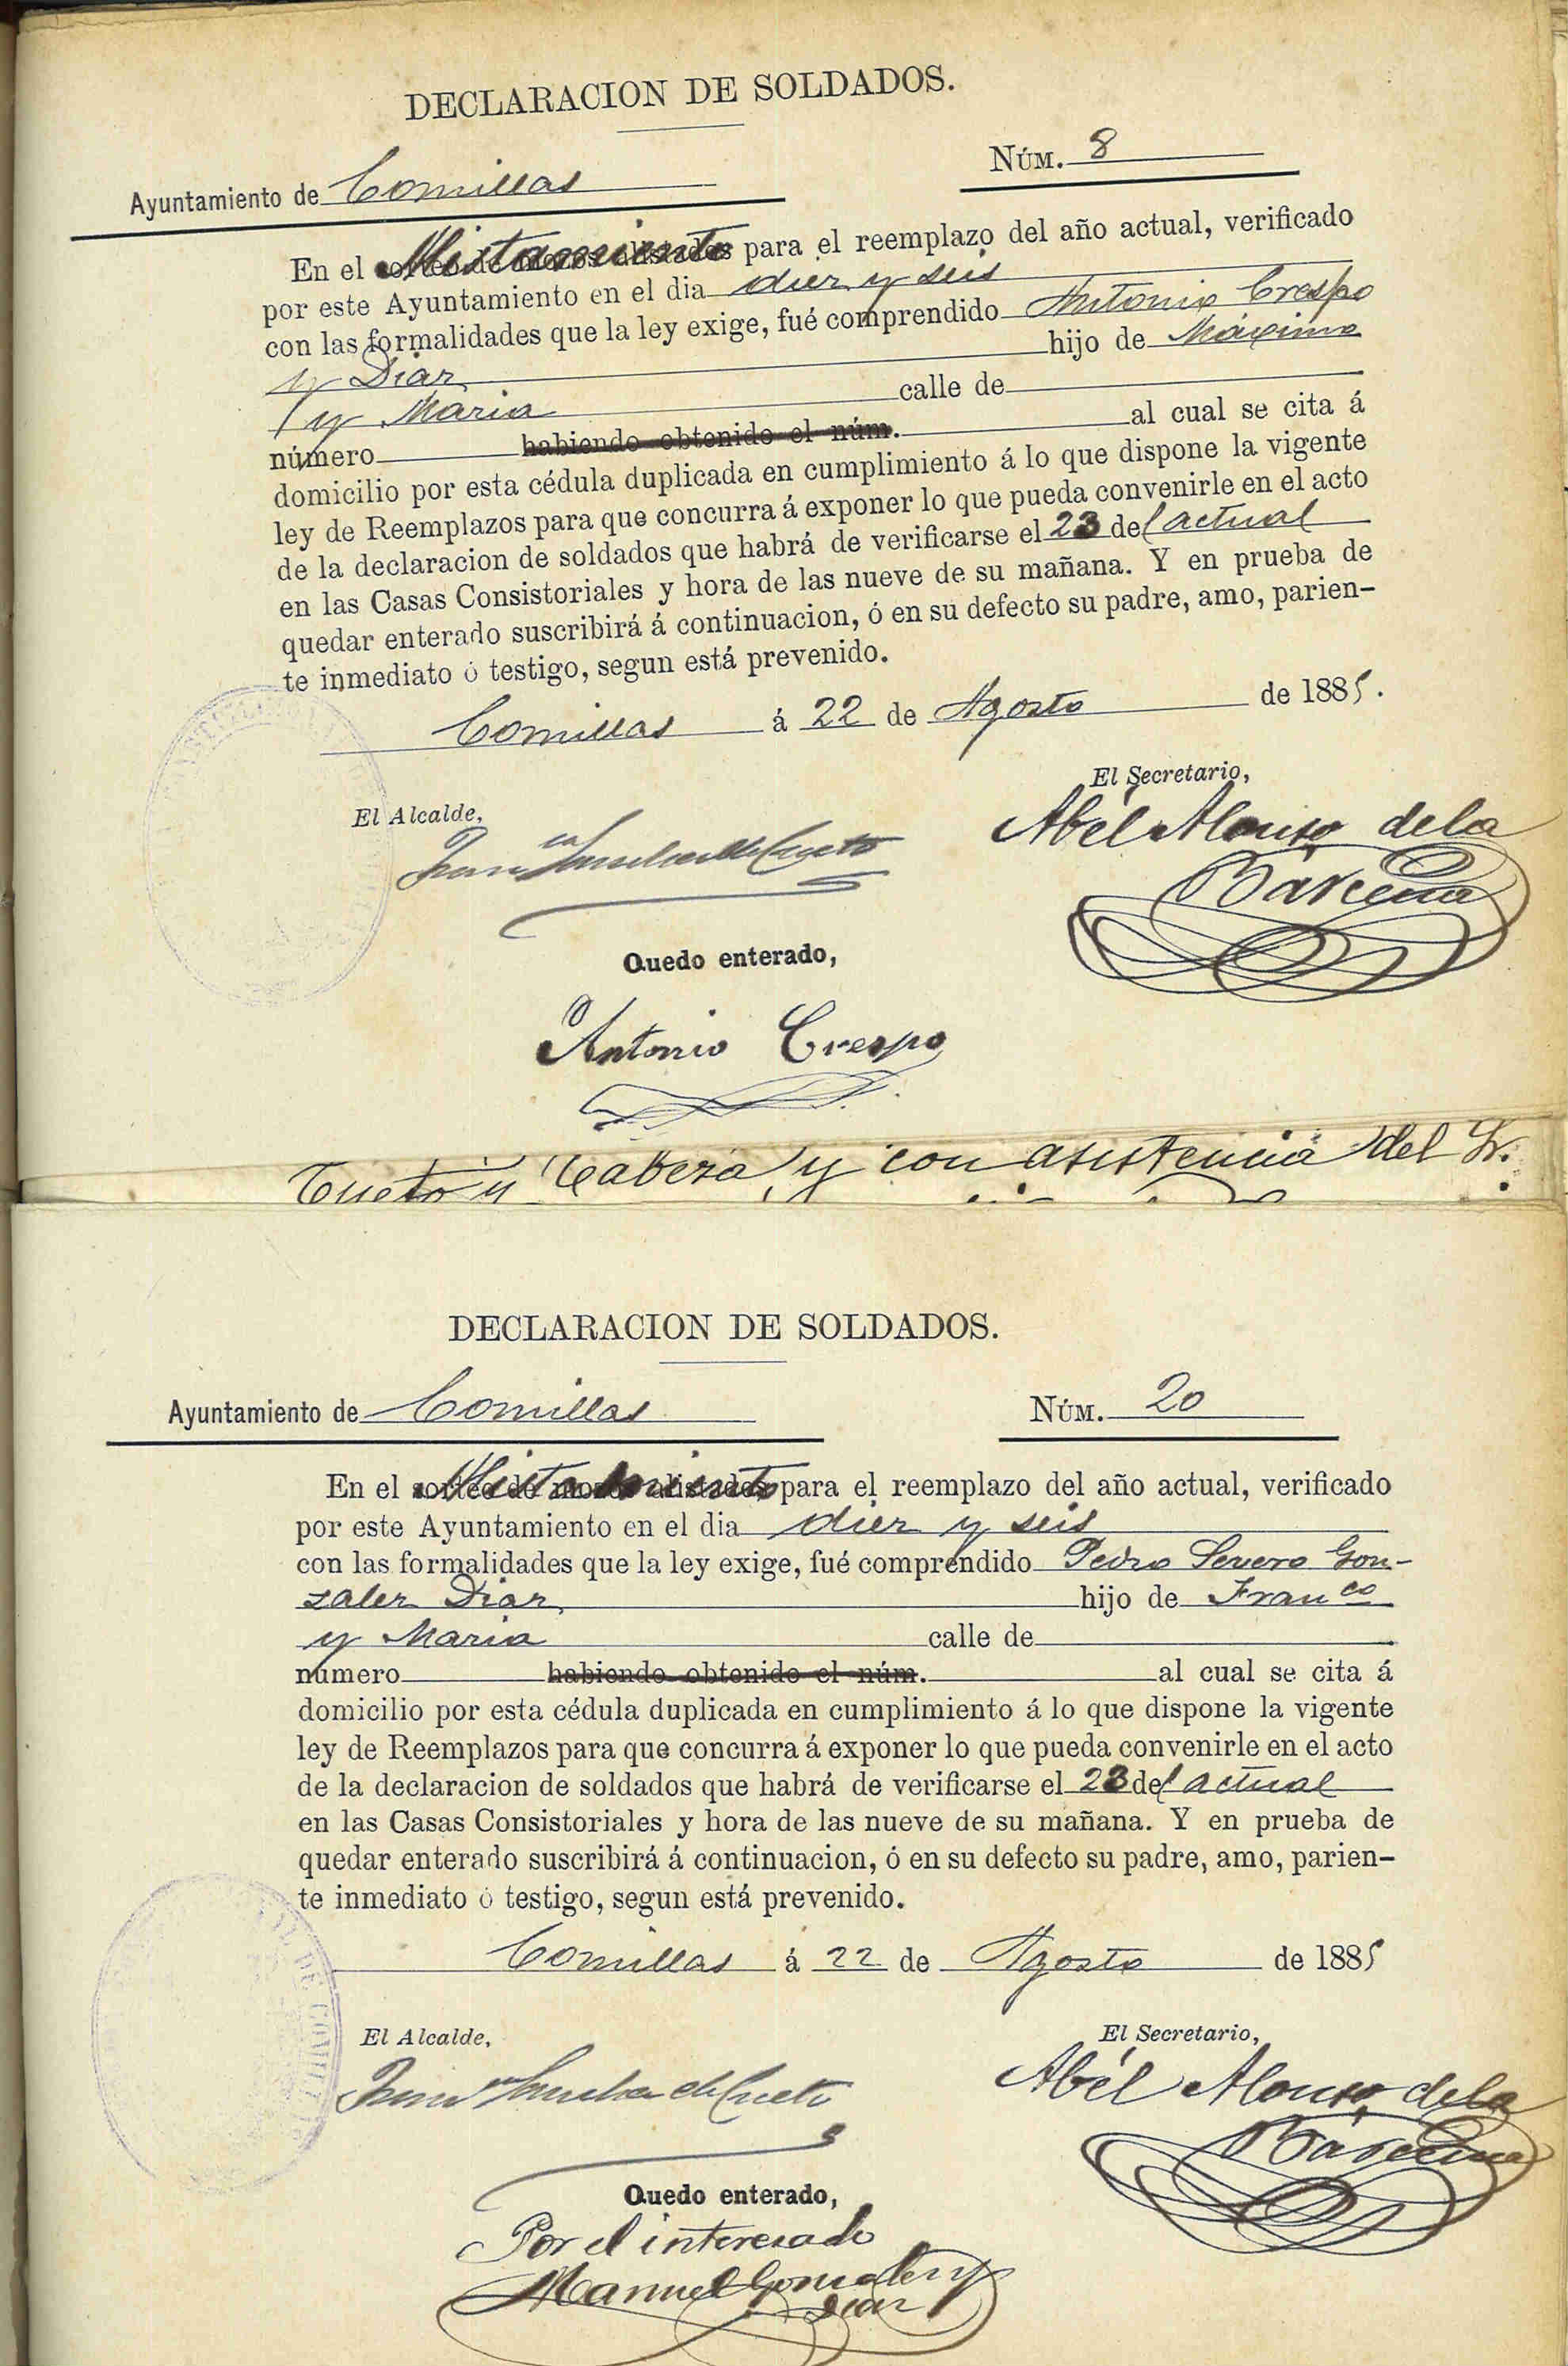 DECLARACION DE SOLDADOS.
Ayuntamiento de Comillas
NÚM. 8
En el Alistamiento para el reemplazo del año actual, verificado
por este Ayuntamiento en el dia diez y seis
con las formalidades que la ley exige, fué comprendido Antonio Crespo
y Diaz hijo de Máximo
y Maria calle de
número habiendo obtenido el núm. al cual se cita á
domicilio por esta cédula duplicada en cumplimiento á lo que dispone la vigente
ley de Reemplazos para que concurra á exponer lo que pueda convenirle en el acto
de la declaracion de soldados que habrá de verificarse el 23 del actual
en las Casas Consistoriales y hora de las nueve de su mañana. Y en prueba de
quedar enterado suscribirá á continuacion, ó en su defecto su padre, amo, parien-
te inmediato ó testigo, segun está prevenido.
Comillas á 22 de Agosto de 1885.
El Secretario,
El Alcalde,
Abél Alonso de la
Bárcena
Quedo enterado,
Antonio Crespo
Cueto y Cabeza, y con asistencia del Sr.
DECLARACION DE SOLDADOS.
Ayuntamiento de Comillas
NÚM. 20
En el sorteo de mozos alistados Alistamiento para el reemplazo del año actual, verificado
por este Ayuntamiento en el dia diez y seis
con las formalidades que la ley exige, fué comprendido Pedro Severo Gon-
zalez Diaz hijo de Franco
y Maria calle de
número habiendo obtenido el núm. al cual se cita á
domicilio por esta cédula duplicada en cumplimiento á lo que dispone la vigente
ley de Reemplazos para que concurra á exponer lo que pueda convenirle en el acto
de la declaracion de soldados que habrá de verificarse el 23 del actual
en las Casas Consistoriales y hora de las nueve de su mañana. Y en prueba de
quedar enterado suscribirá á continuacion, ó en su defecto su padre, amo, parien-
te inmediato ó testigo, segun está prevenido.
Comillas á 22 de Agosto de 1885
El Alcalde,
El Secretario,
Abél Alonso de la
Bárcena
Quedo enterado,
Por el interesado
Manuel Gonzalez y
Diaz